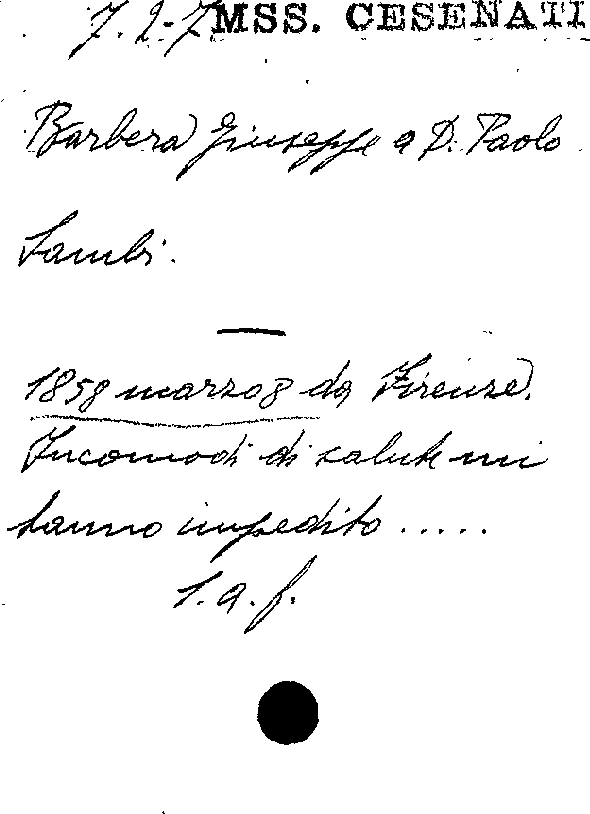 7. 2-7 MSS. CESENATI
Barbera Giuseppe a D. Paolo
Sambi.
1858 marzo 8 da Firenze.
Incomodi di salute mi
hanno impedito .....
1. a. f.